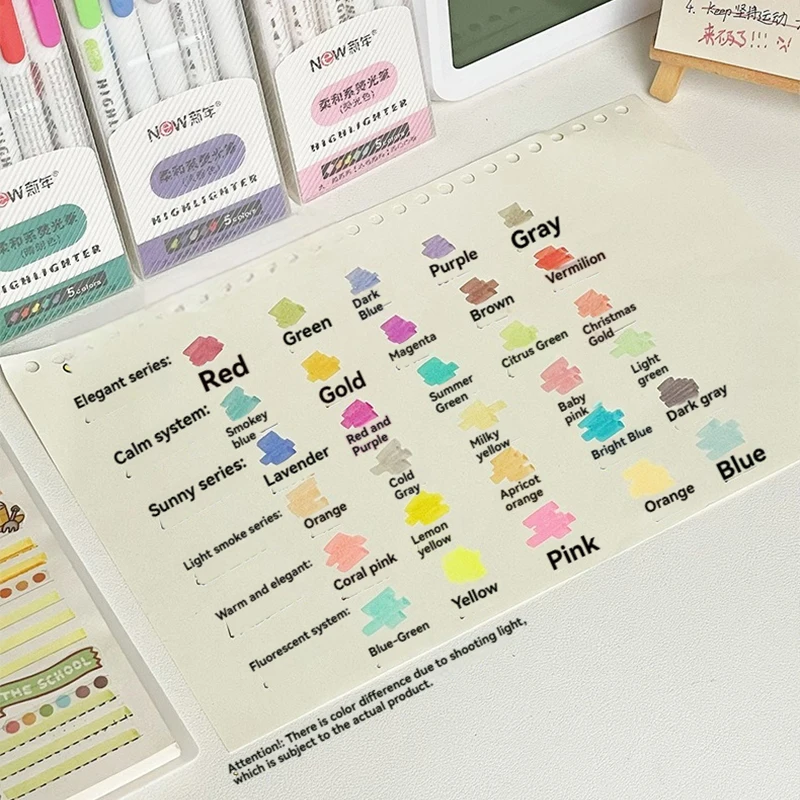 4. keep坚持运动
来不及了!!!
New新生
柔和系荧光笔
(荧光色)
HIGHLIGHTER
5colors
New新生
柔和系荧光笔
HIGHLIGHTER
5colors
New新生
柔和系荧光笔
HIGHLIGHTER
5colors
HIGHL
Elegant series:
Red
Green
Dark
Blue
Purple
Gray
Calm system:
Smokey
blue
Gold
Magenta
Brown
Vermilion
Sunny series:
Lavender
Red and
Purple
Summer
Green
Citrus Green
Christmas
Gold
Light smoke series:
Orange
Cold
Gray
Milky
yellow
Baby
pink
Light
green
Warm and elegant:
Coral pink
Lemon
yellow
Apricot
orange
Bright Blue
Dark gray
Fluorescent system:
Blue-Green
Yellow
Pink
Orange
Blue
THE SCHOOL
Attention!: There is color difference due to shooting light,
which is subject to the actual product.